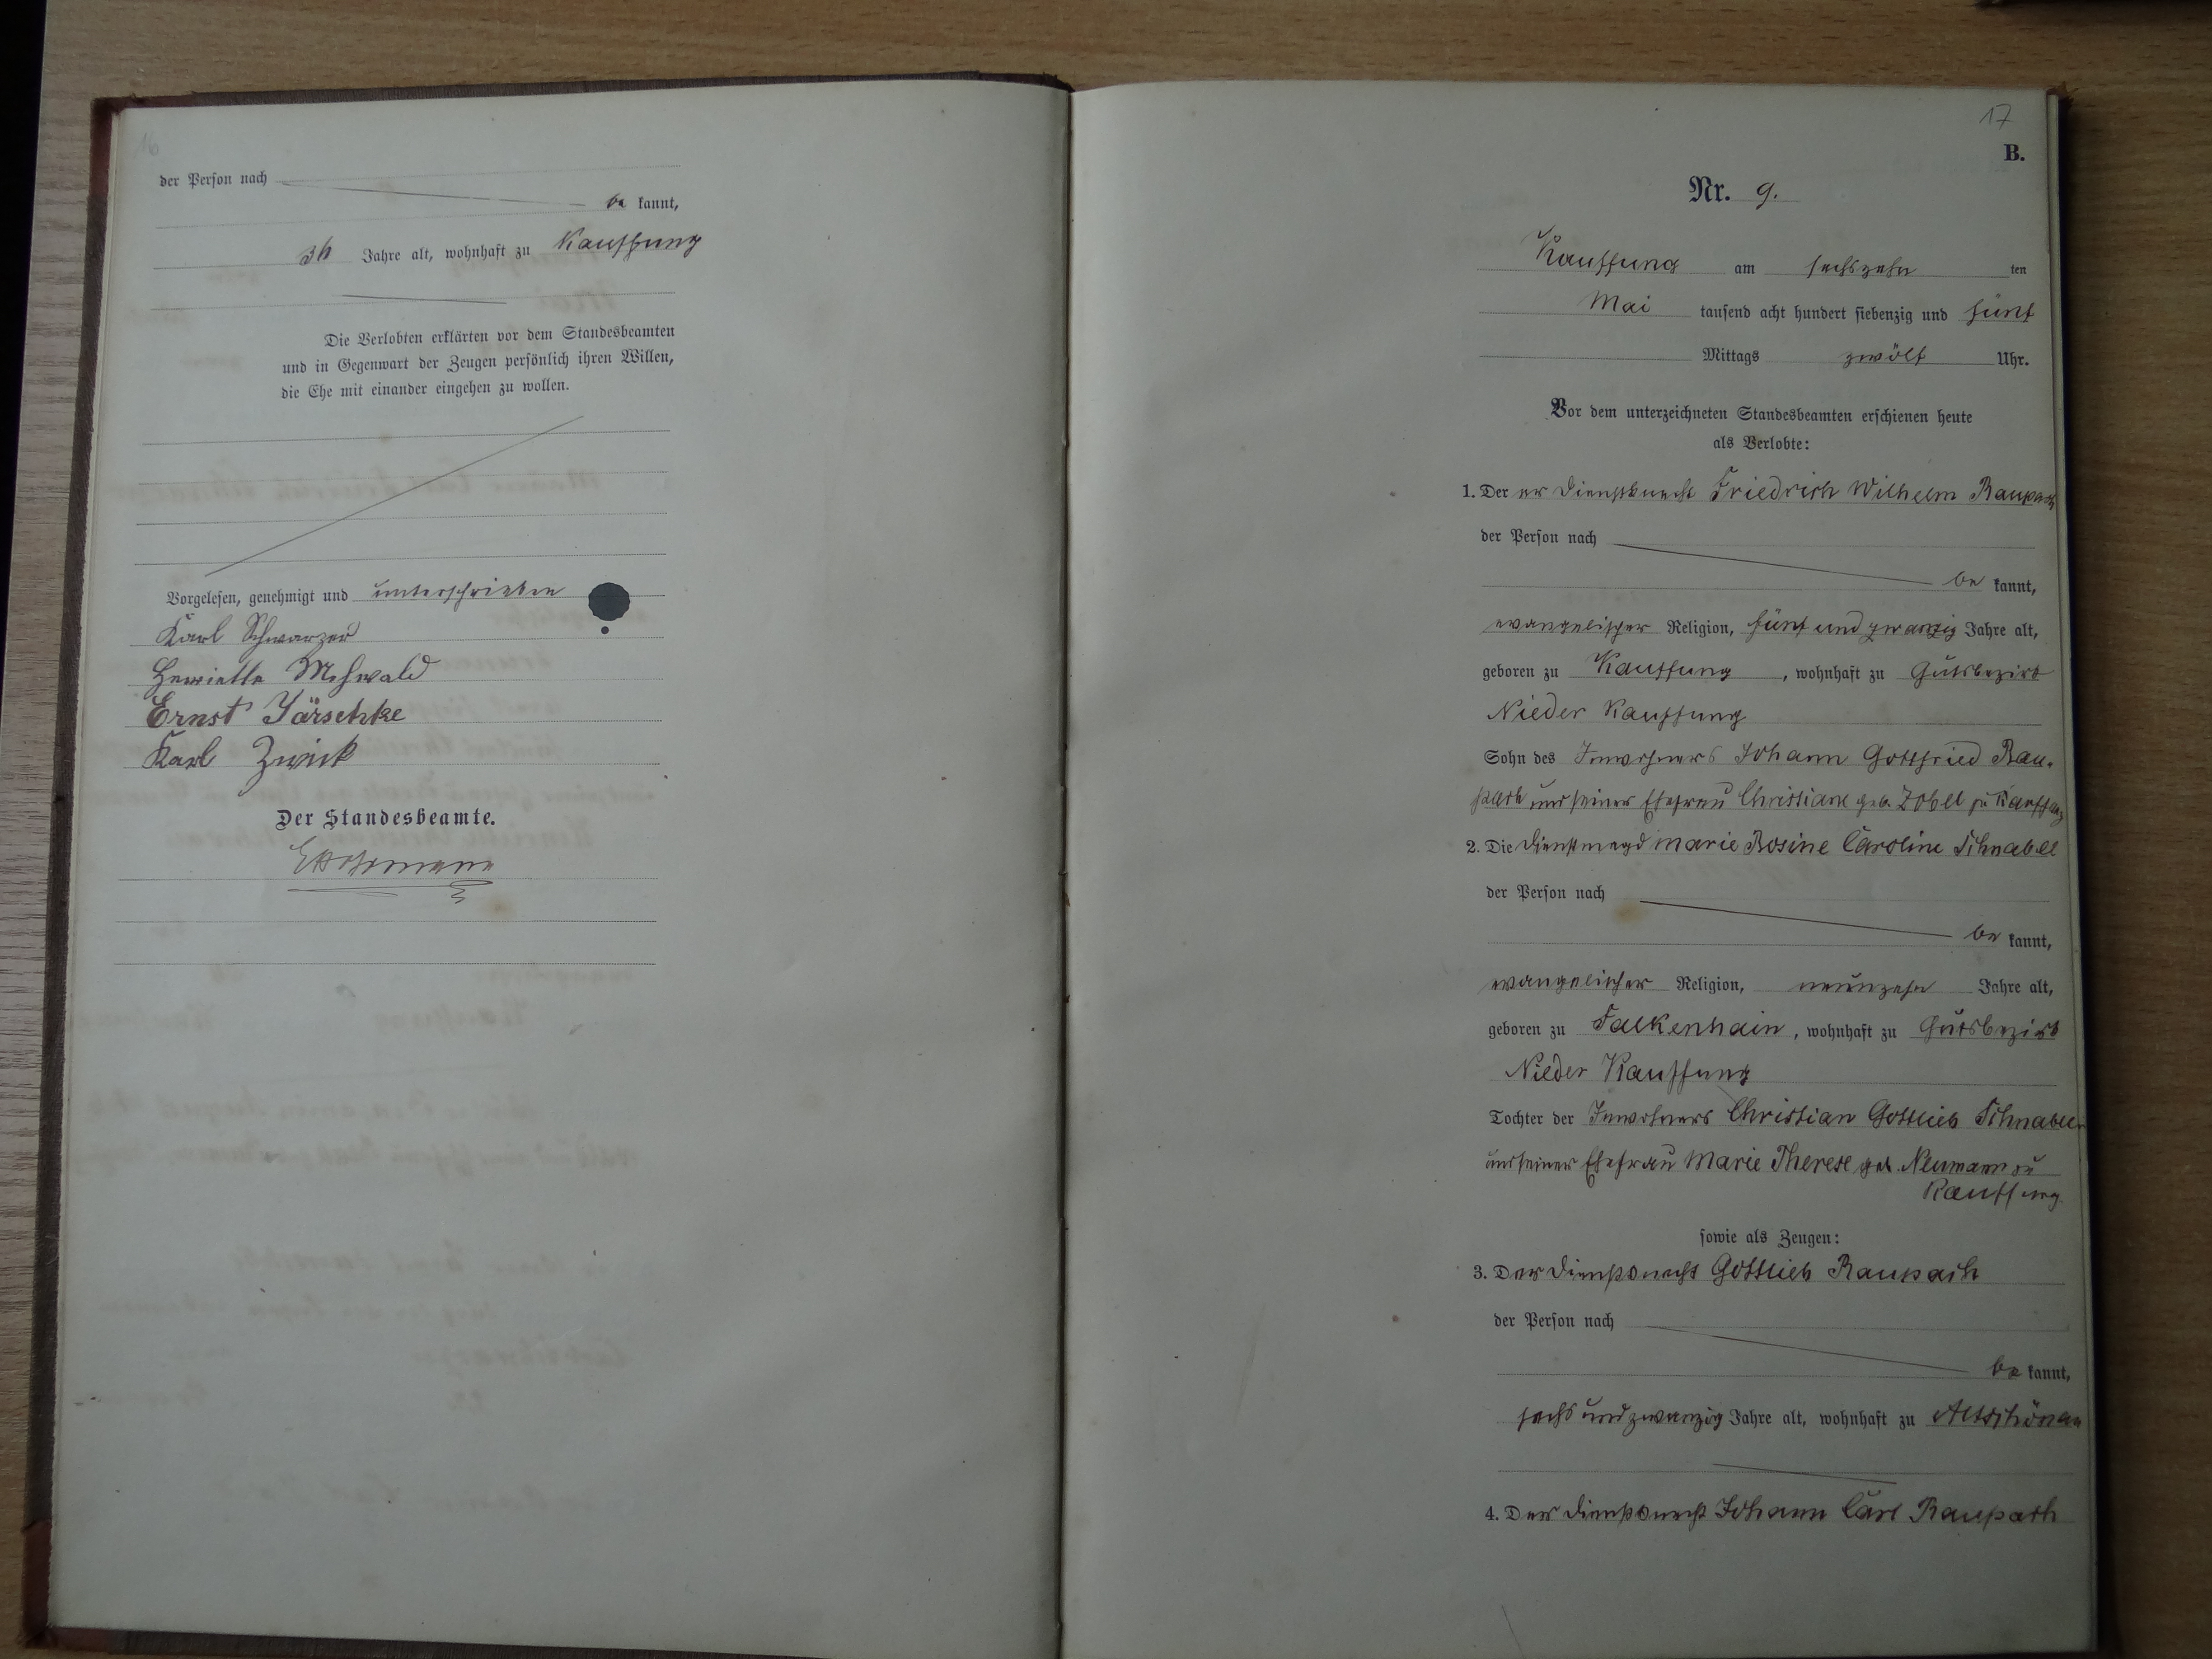 16
der Person nach
be kannt,
36 Jahre alt, wohnhaft zu Kauffung
Die Verlobten erklärten vor dem Standesbeamten
und in Gegenwart der Zeugen persönlich ihren Willen,
die Ehe mit einander eingehen zu wollen.
Vorgelesen, genehmigt und unterschrieben
Karl Schwarzer
Henriette Mehwald
Ernst Järschke
Karl Zwick
Der Standesbeamte.
17
B.
Nr. 9.
Kauffung am sechszehn ten
Mai tausend acht hundert siebenzig und fünf
Mittags zwölf Uhr.
Vor dem unterzeichneten Standesbeamten erschienen heute
als Verlobte:
1. Der er Dienstknecht Friedrich Wilhelm Raupach
der Person nach
be kannt,
evangelischer Religion, fünf und zwanzig Jahre alt,
geboren zu Kauffung, wohnhaft zu Gutsbezirk
Nieder Kauffung
Sohn des Inwohners Johann Gottfried Rau-
pach und seiner Ehefrau Christiane geb. Zobel zu Kauffung
2. Die Dienstmagd Marie Rosine Caroline Schnabel
der Person nach
be kannt,
evangelischer Religion, neunzehn Jahre alt,
geboren zu Falkenhain, wohnhaft zu Gutsbezirk
Nieder Kauffung
Tochter der Inwohners Christian Gottlieb Schnabel
und seiner Ehefrau Marie Therese geb. Neumann zu
Kauffung
sowie als Zeugen:
3. Der Dienstknecht Gottlieb Raupach
der Person nach
be kannt,
sechs und zwanzig Jahre alt, wohnhaft zu Altschönau
4. Der Dienstknecht Johann Carl Raupach